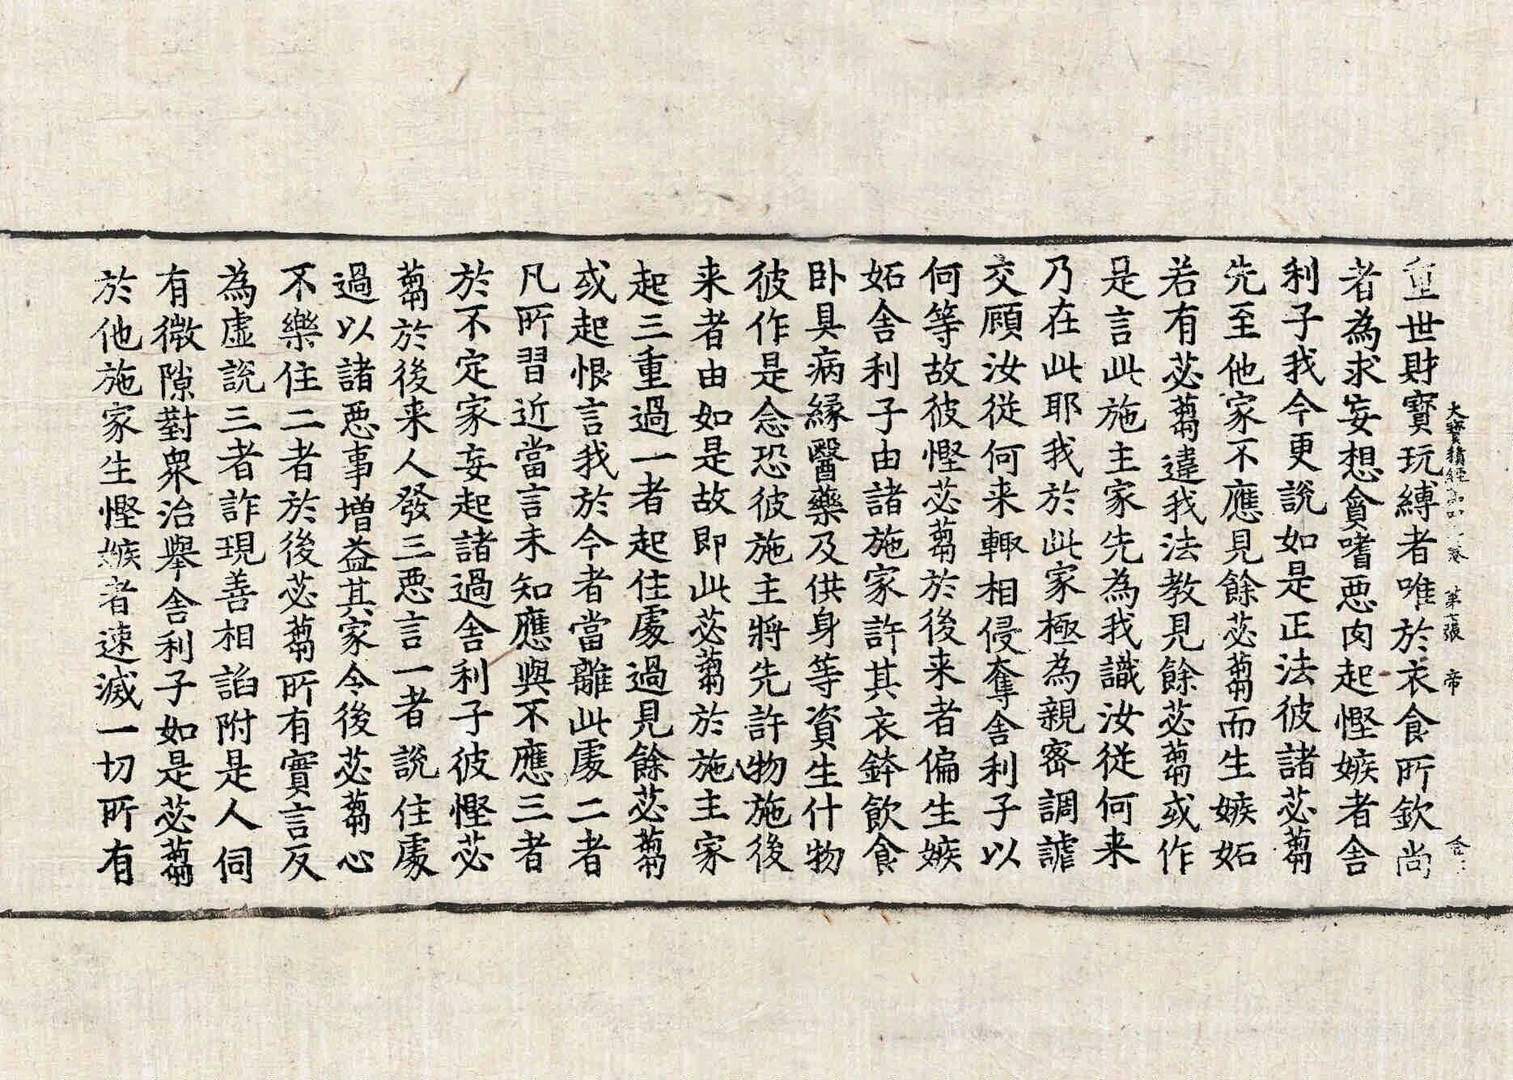 大寶積經 卷 第七張 帝
重世財寶玩縛者唯於衣食所欽尚
者為求妄想貪嗜惡肉起慳嫉者舍
利子我今更說如是正法彼諸苾蒭
先至他家不應見餘苾蒭而生嫉妬
若有苾蒭違我法教見餘苾蒭或作
是言此施主家先為我識汝從何来
乃在此耶我於此家極為親密調謔
交顧汝從何来輙相侵奪舍利子以
何等故彼慳苾蒭於後来者偏生嫉
妬舍利子由諸施家許其衣鉢飲食
卧具病緣醫藥及供身等資生什物
彼作是念恐彼施主將先許物施後
来者由如是故即此苾蒭於施主家
起三重過一者起住處過見餘苾蒭
或起恨言我於今者當離此處二者
凡所習近當言未知應與不應三者
於不定家妄起諸過舍利子彼慳苾
蒭於後来人發三惡言一者說住處
過以諸惡事增益其家令後苾蒭心
不樂住二者於後苾蒭所有實言反
為虛說三者詐現善相諂附是人伺
有微隙對衆治舉舍利子如是苾蒭
於他施家生慳嫉者速滅一切所有